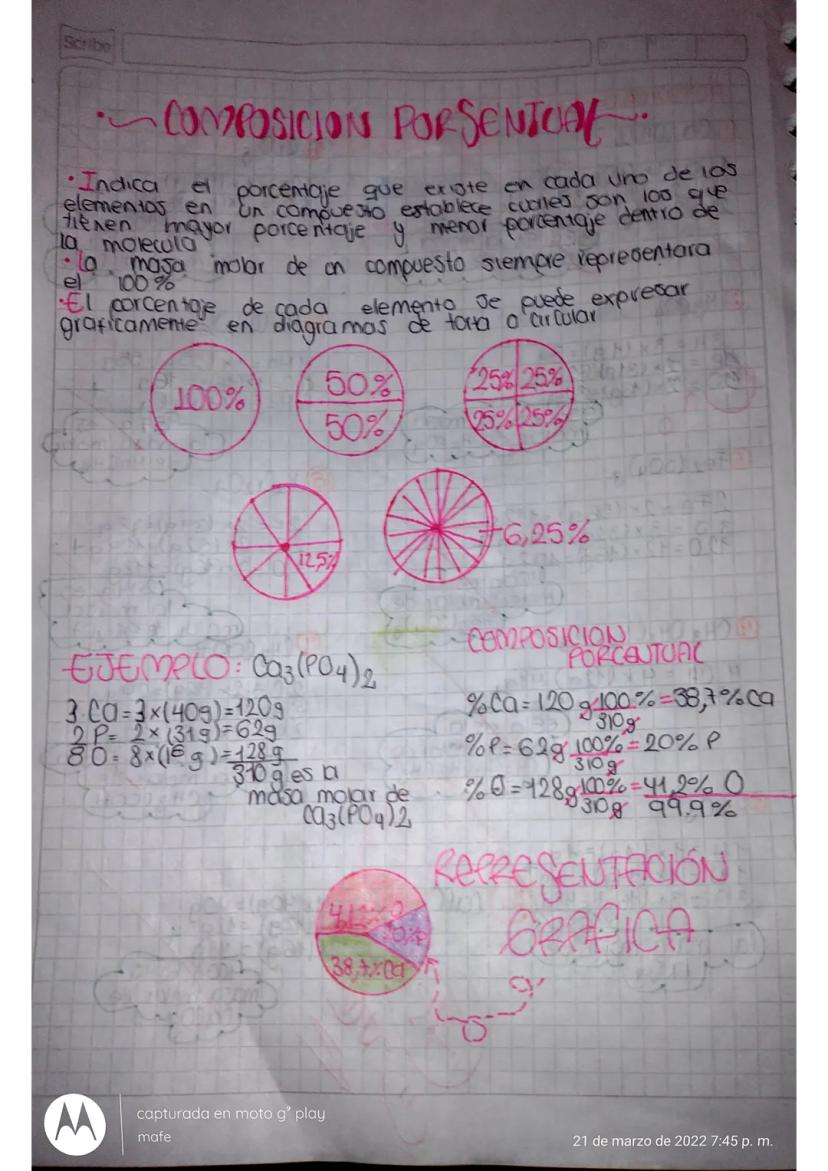 Scribe
COMPOSICION PORSENTUAL
·Indica el porcentaje que existe en cada uno de los
elementos en un compuesto establece cuales son los que
tienen mayor porcentaje y menor porcentaje dentro de
la molecula
·la masa molar de un compuesto siempre representara
el 100%
·El porcentaje de cada elemento se puede expresar
graficamente en diagramas de torta o circular
100%
50%
50%
25% 25%
25% 25%
12,5%
6,25%
EJEMPLO: Ca3(PO4)2
3 Ca=3x(40g)=120g
2 P= 2x(31g)=62g
8 O= 8x(16g)=128g
310g es la
masa molar de
Ca3(PO4)2
COMPOSICION
PORCENTUAL
%Ca=120g 100%=38,7%Ca
310g
%P=62g 100%=20% P
310g
%O=128g 100%=41,2% O
310g 99.9%
REPRESENTACIÓN
GRAFICA
41,2% O
20%P
38,7%Ca
capturada en moto g⁹ play
mafe
21 de marzo de 2022 7:45 p. m.